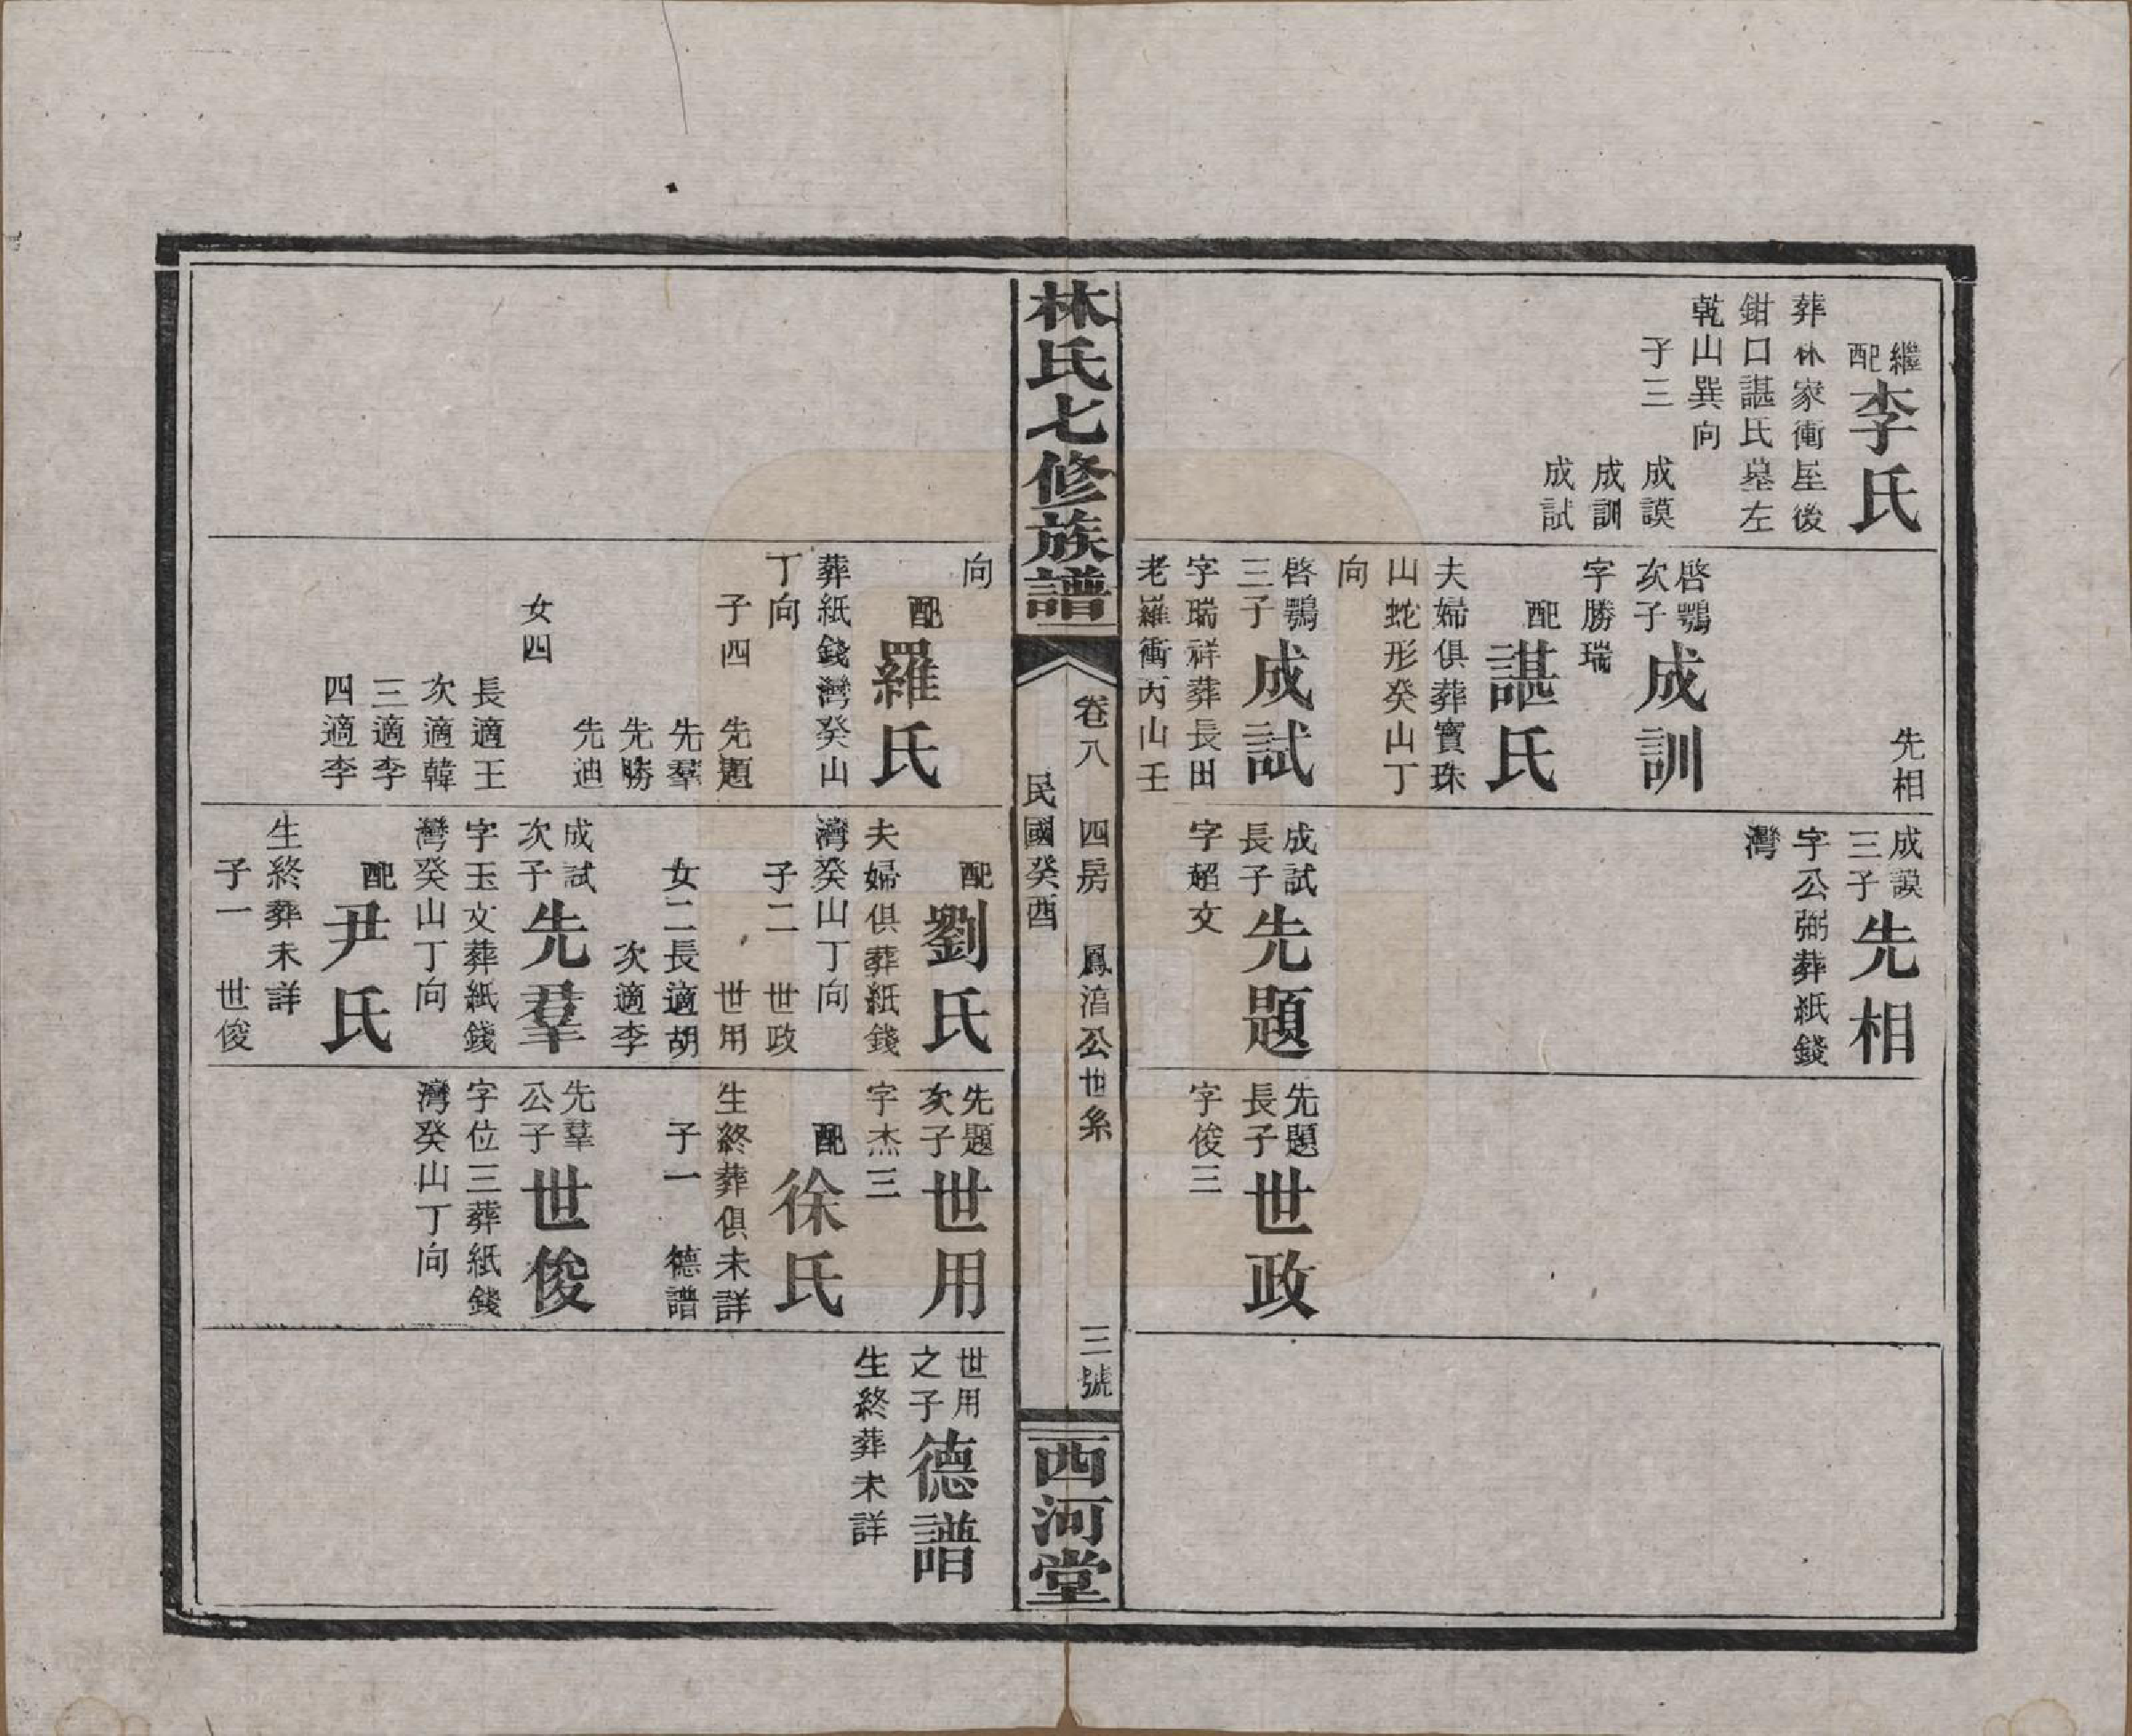 繼配李氏
葬林家衝屋後
鉗口諶氏墓左
乾山巽向
子三 成謨
成訓
成試
先相
啓鶚次子成訓
字勝瑞
配諶氏
夫婦俱葬寶珠
山蛇形癸山丁
向
啓鶚三子成試
字瑞祥葬長田
老羅衝丙山壬
成謨三子先相
字公弼葬紙錢
灣
成試長子先題
字超文
先題長子世政
字俊三
林氏七修族譜
卷八 四房 鳳湻公世系 三號
民國癸酉
西河堂
向
配羅氏
葬紙錢灣癸山
丁向
子四 先題
先羣
先勝
先迪
女四
長適王
次適韓
三適李
四適李
配劉氏
夫婦俱葬紙錢
灣癸山丁向
子二 世政
世用
女二長適胡
次適李
成試次子先羣
字玉文葬紙錢
灣癸山丁向
配尹氏
生終葬未詳
子一 世俊
先題次子世用
字杰三
配徐氏
生終葬俱未詳
子一 德譜
先羣公子世俊
字位三葬紙錢
灣癸山丁向
世用之子德譜
生終葬未詳